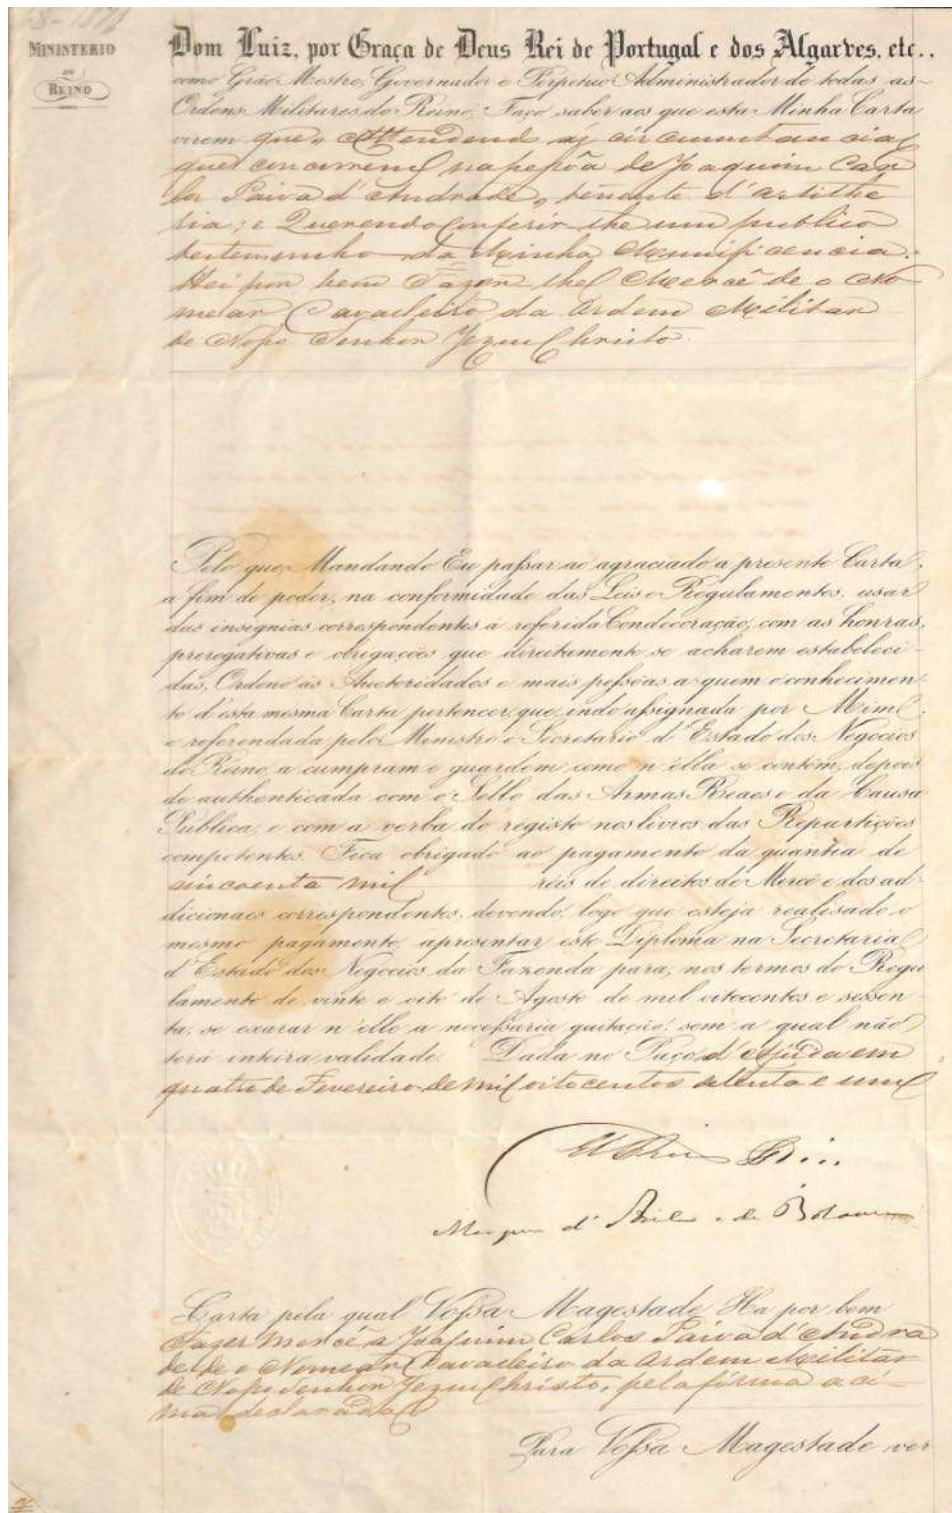 MINISTERIO
DO
REINO
Dom Luiz, por Graça de Deus Rei de Portugal e dos Algarves, etc..
como Grão-Mestre, Governador e Perpetuo Administrador de todas as
Ordens Militares do Reino. Faço saber aos que esta Minha Carta
virem que, Attendendo ás circumstancias
que concorrem na peſsôa de Joaquim Car
los Paiva d'Andrade, tenente d'artilhe
ria; e Querendo Conferir-lhe um publico
testemunho da Minha Munificencia:
Hei por bem Fazer-lhe Mercê de o No
mear Cavalleiro da Ordem Militar
de Noſso Senhor Jezus Christo.
Pelo que, Mandando Eu paſsar ao agraciado a presente Carta,
a fim de poder, na conformidade das Leis e Regulamentos, usar
das insignias correspondentes á referida Condecoração, com as honras,
prerogativas e obrigações que direitamente se acharem estabeleci-
das, Ordeno ás Auctoridades e mais peſsoas a quem o conhecimen-
to d'esta mesma Carta pertencer, que, indo aſsignada por Mim
e referendada pelo Ministro e Secretario d'Estado dos Negocios
do Reino, a cumpram e guardem como n'ella se contém, depois
de authenticada com o Sello das Armas Reaes e da Causa
Publica, e com a verba do registo nos livros das Repartições
competentes. Fica obrigado ao pagamento da quantia de
sincoenta mil réis de direitos de Mercê e dos ad-
dicionaes correspondentes, devendo, logo que esteja realisado o
mesmo pagamento, apresentar este Diploma na Secretaria
d'Estado dos Negocios da Fazenda para, nos termos do Regu
lamento de vinte e oito de Agosto de mil oitocentos e sessen-
ta, se exarar n'elle a neceſsaria quitação, sem a qual não
terá inteira validade. Dada no Paço d'Ajuda em
quatro de Fevereiro de mil oitocentos setenta e um
El Rei
Marquez d'Avila e de Bolama
Carta pela qual Voſsa Magestade Ha por bem
Fazer Mercê a Joaquim Carlos Paiva d'Andra
de de o Nomear Cavalleiro da Ordem Militar
de Noſso Senhor Jezus Christo, pela fórma aci-
ma declarada
Para Voſsa Magestade ver